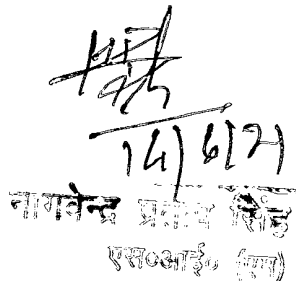 14/6/21
नागवेन्द्र प्रताप सिंह
एस०आई० (एम)